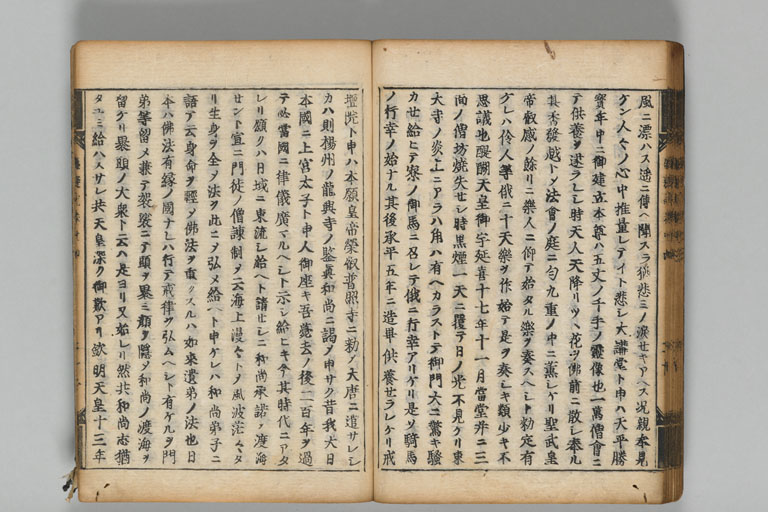 風ニ漂ハス遥ニ傳ヘ聞スラ猶悲ミノ涙セキアヘス况親本見
ケン人々ノ心中推量レテイト悲シ大講堂ト申ハ天平勝
寳年中ニ御建立本尊ハ五丈ノ千手ノ靈像也一萬僧會ニ
テ供養ヲ遂ラレシ時天人天降リツヽ花ヲ佛前ニ散レ奉ル
其香發越トシテ法會ノ庭ニ匀九重ノ中ニ薫レケリ聖武皇
帝叡感ノ餘リニ樂人ニ仰テ始タル樂ヲ奏スヘシト勅定有
ケレハ伶人等俄ニ十天樂ヲ作始テ是ヲ奏シキ類少キ不
思議也醍醐天皇御宇延喜十七年十一月當堂并ニ三
面ノ僧坊燒失セシ時黒煙一天ニ覆テ日ノ光不見ケリ東
大寺ノ炎上ニアラハ角ハ有ヘカラストテ御門大ニ驚キ騒
カセ給ヒテ寮ノ御馬ニ召レテ俄ニ行幸アリケリ是ソ騎馬
ノ行幸ノ始ナル其後承平五年ニ造畢供養セラレケリ戒
壇院ト申ハ本願皇帝榮叡普照等ニ勅シテ大唐ニ遣サレシ
カハ則楊州ノ龍興寺ノ鑒眞和尚ニ謁シテ申サク昔我大日
本國ニ上宮太子ト申人御座キ吾薨去ノ後二百年ヲ過
テ必當國ニ律儀廣マルヘシト示シ給ヒキ今其時代ニアタ
レリ願クハ日域ニ東流シ給ヘト請セシニ和尚承諾シテ渡海
セント宣ニ門徒ノ僧諫制シテ云海上漫々トシテ風波茫々タ
リ生身ヲ全シテ法ヲ此ニテ弘メ給ヘト申ケレハ和尚弟子ニ
語テ云身命ヲ輕シテ佛法ヲ重クスルハ如來遺弟ノ法也日
本ハ佛法有縁ノ國ナリ行テ戒律ヲ弘ムヘシト有ケルヲ門
弟等留メ兼テ袈裟ニテ頭ヲ裹ミ顔ヲ隠シテ和尚ノ渡海ヲ
留ケリ裹頭ノ大衆ト云ハ是ヨリ又始レリ然共和尚志猶
タユミ給ハスサレ共天皇深ク御歎アリ欽明天皇十三年